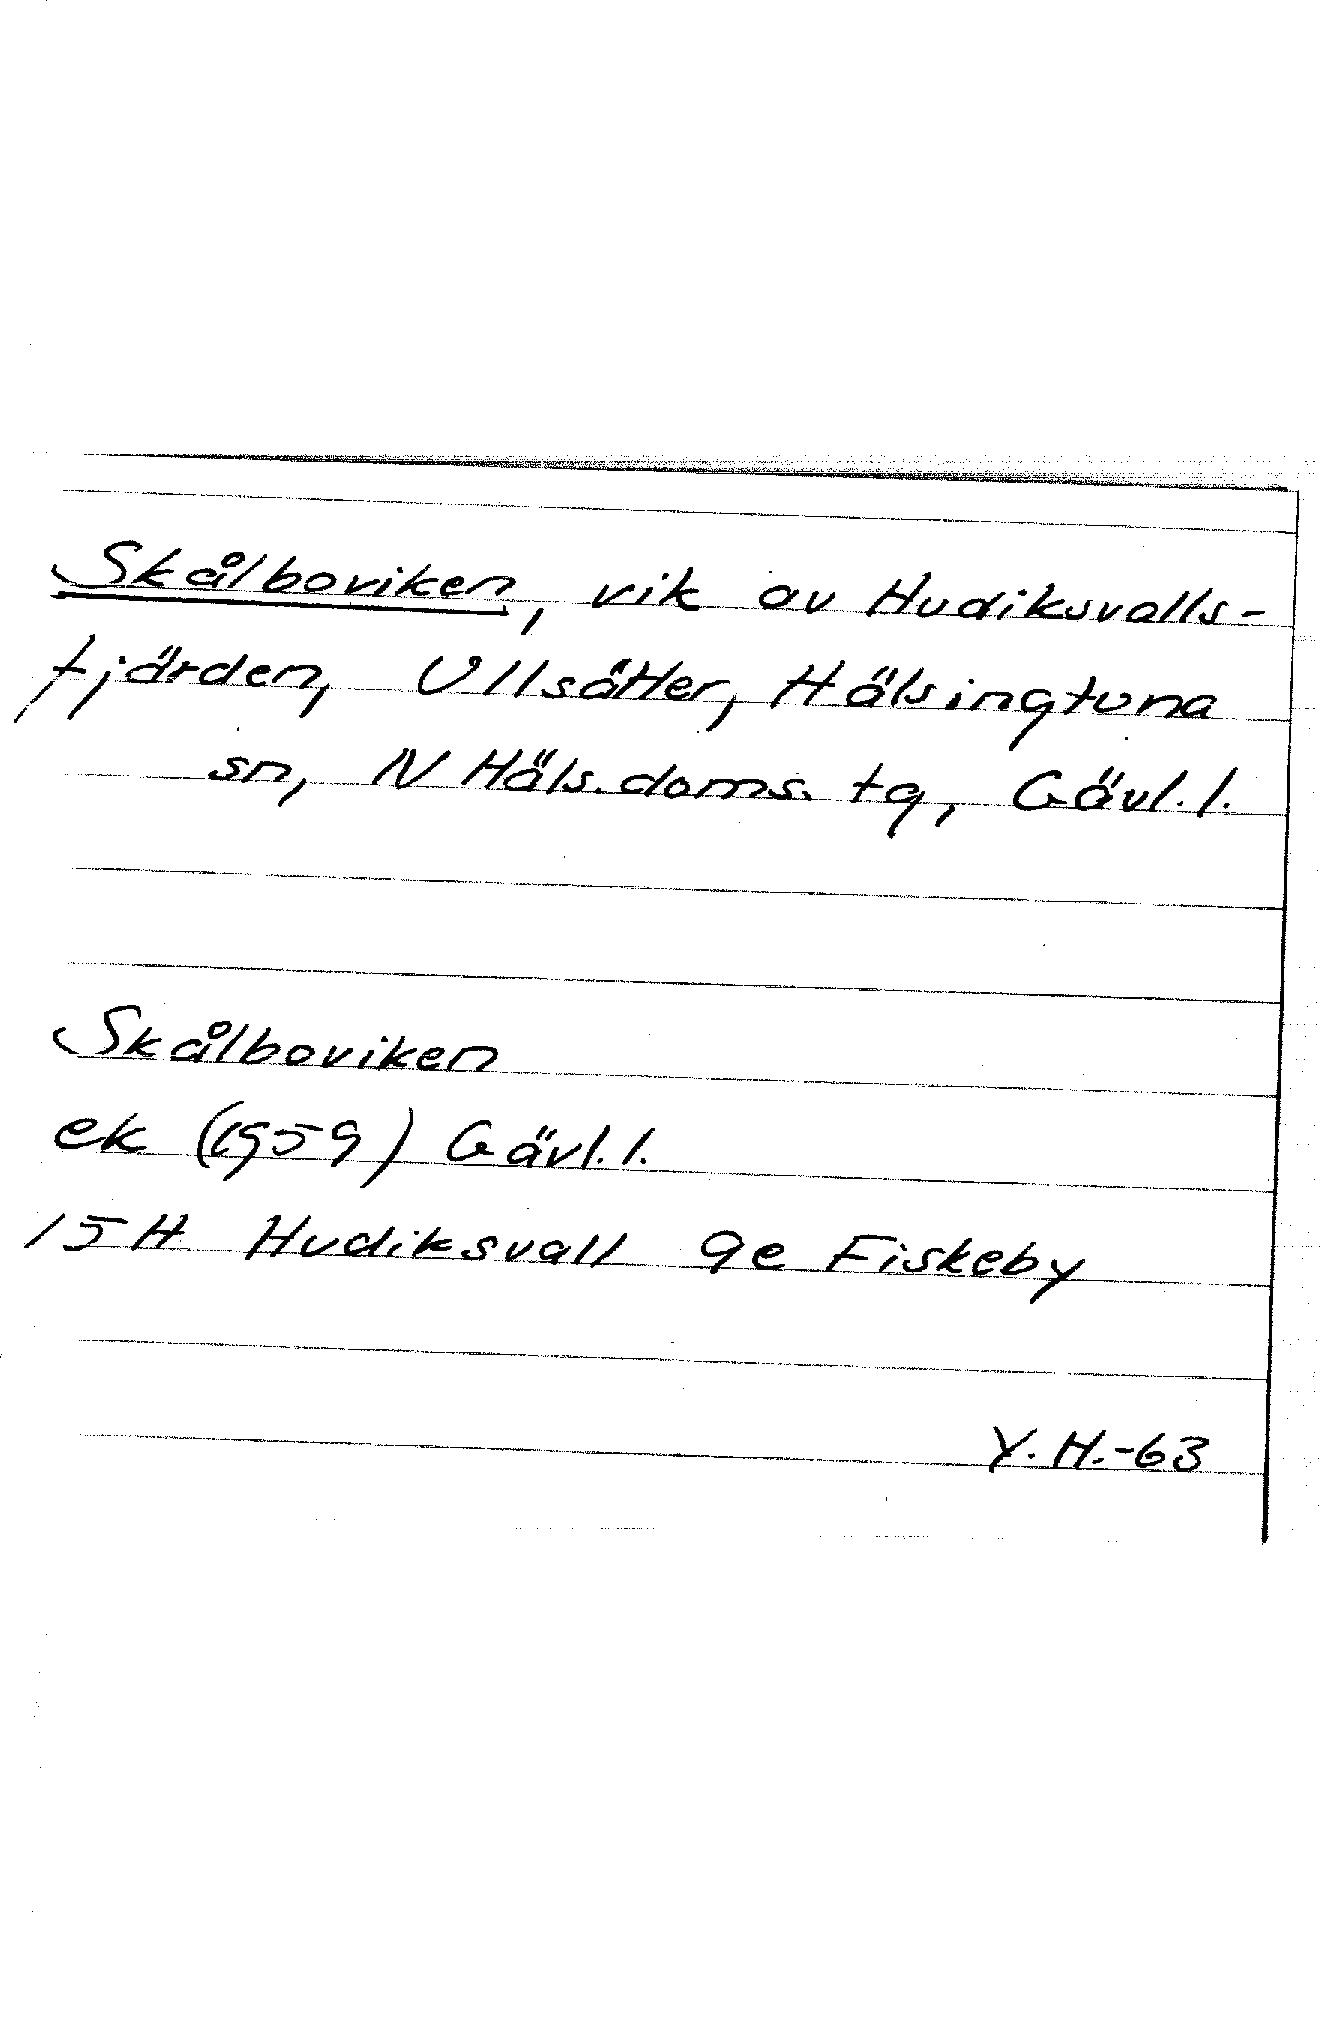 Skålboviken, vik av Hudiksvalls-
fjärden, Ullsätter, Hälsingtuna
sn, N Häls. doms. tg, Gävl. l.
Skålboviken
ek (1959) Gävl. l.
15H Hudiksvall 9e Fiskeby
Y. H.-63